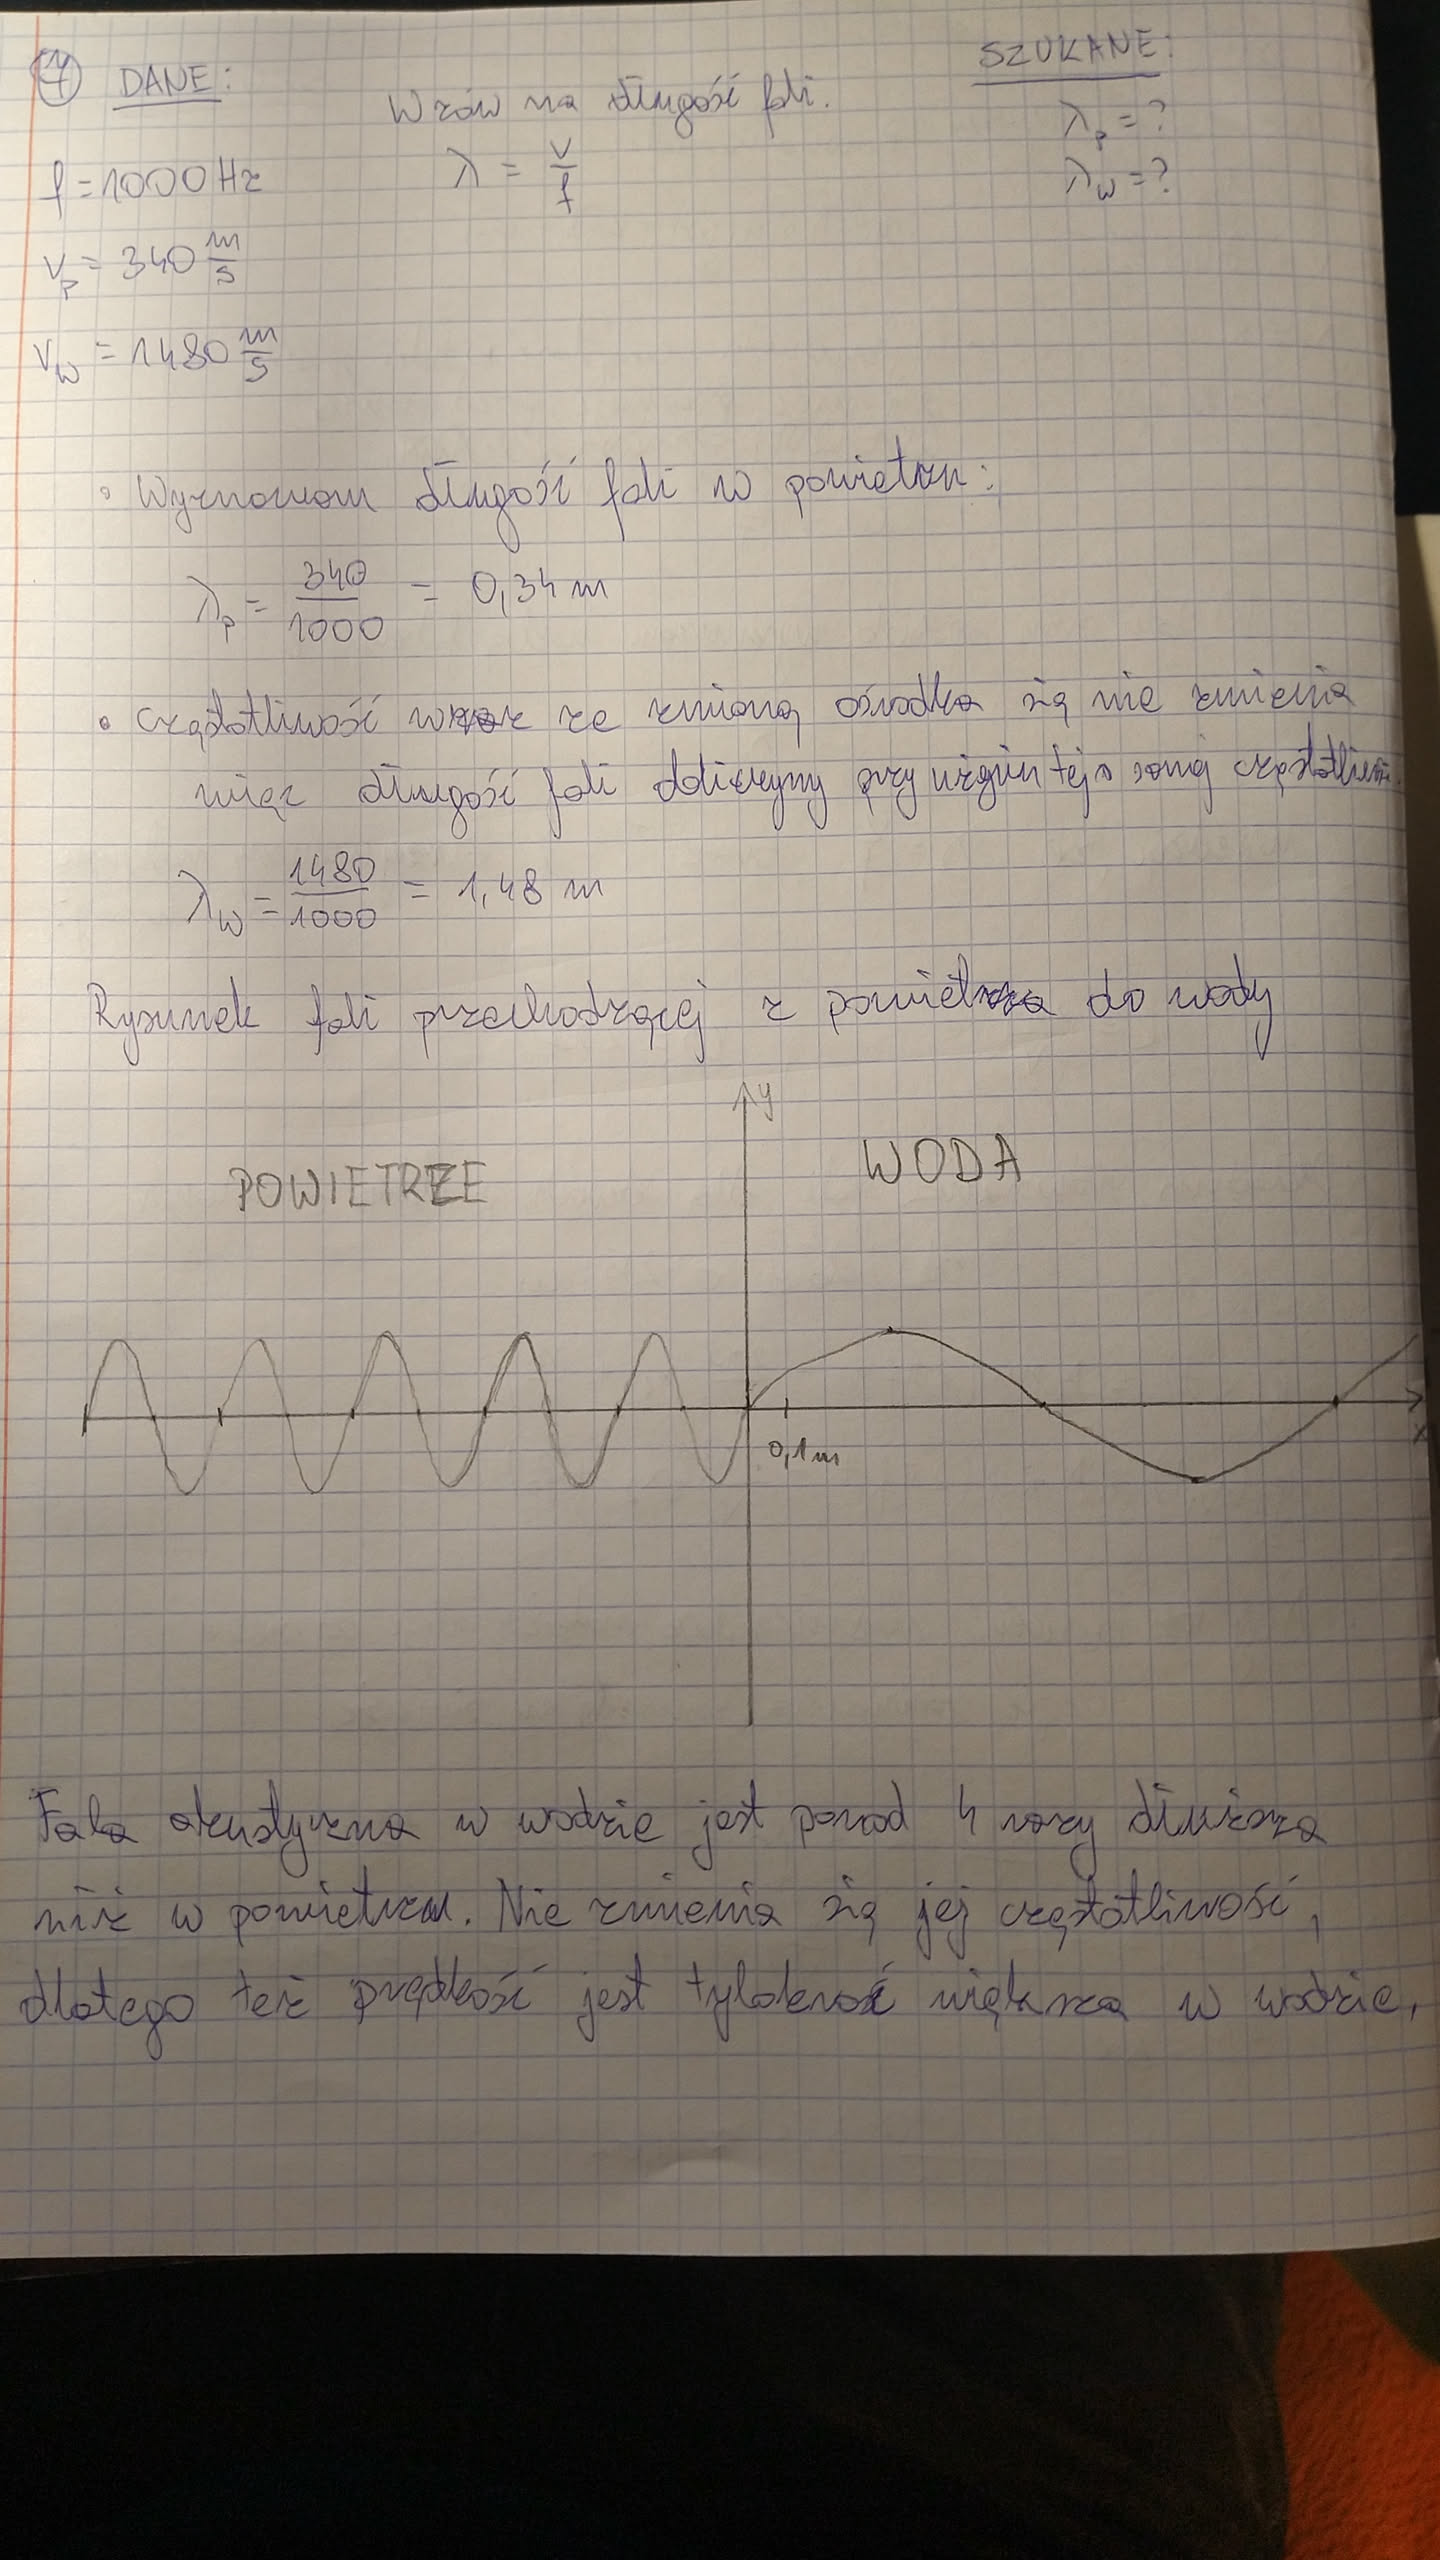 7 DANE:
Wzów na długość fali.
SZUKANE:
λp = ?
λ = v/f
λw = ?
f = 1000 Hz
vp = 340 m/s
vw = 1480 m/s
• Wyznaczam długość fali w powietrzu:
λp = 340/1000 = 0,34 m
• Częstotliwość wraz ze zmianą ośrodka się nie zmienia
więc długość fali obliczymy przy użyciu tej samej częstotliwości.
λw = 1480/1000 = 1,48 m
Rysunek fali przechodzącej z powietrza do wody
y
POWIETRZE
WODA
0,1m
x
Fala akustyczna w wodzie jest ponad 4 razy dłuższa
niż w powietrzu. Nie zmienia się jej częstotliwość,
dlatego też prędkość jest tylokroć większa w wodzie,